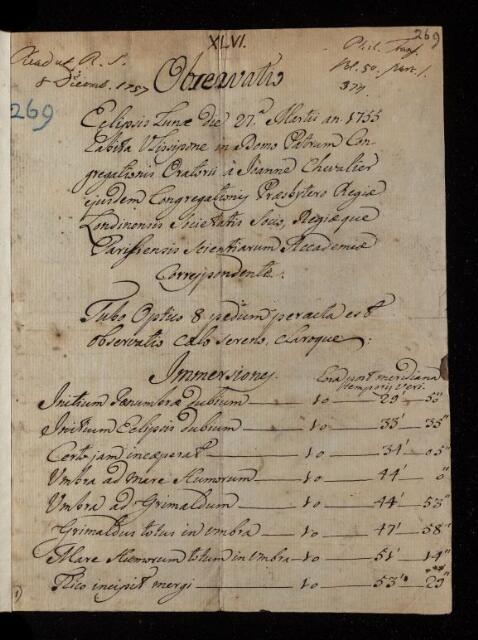 269
XLVI.
Read at R. S.
8 Decemb. 1757
Phil. Trans.
Vol. 50. part. 1.
374.
269
Observatio
Eclipsis Lunæ die 27.a Martii an. 1755
habita Ulissipone in Domo Patrum Con-
gregationis Oratorii à Joanne Chevalier
ejusdem Congregationis Præsbytero Regiæ
Londinensis Societatis Socio, Regiæque
Parisiensis Scientiarum Accademiæ
Correspondente.
Tubo Optico 8 pedum peracta est
observatio cælo sereno, claroque:
Immersiones.
Hora post meridiana
temporis veri.
Initium Penumbræ dubium — 10 — 29' — 53"
Initium Eclipsis dubium — 10 — 33' — 35"
Certo jam inceperat — 10 — 34' — 05"
Umbra ad Mare Humorum — 10 — 44' — 0"
Umbra ad Grimaldum — 10 — 44' — 53"
Grimaldus totus in umbra — 10 — 47' — 58"
Mare Humorum totum in umbra — 10 — 51' — 14"
Tico incipit mergi — 10 — 53' — 29"